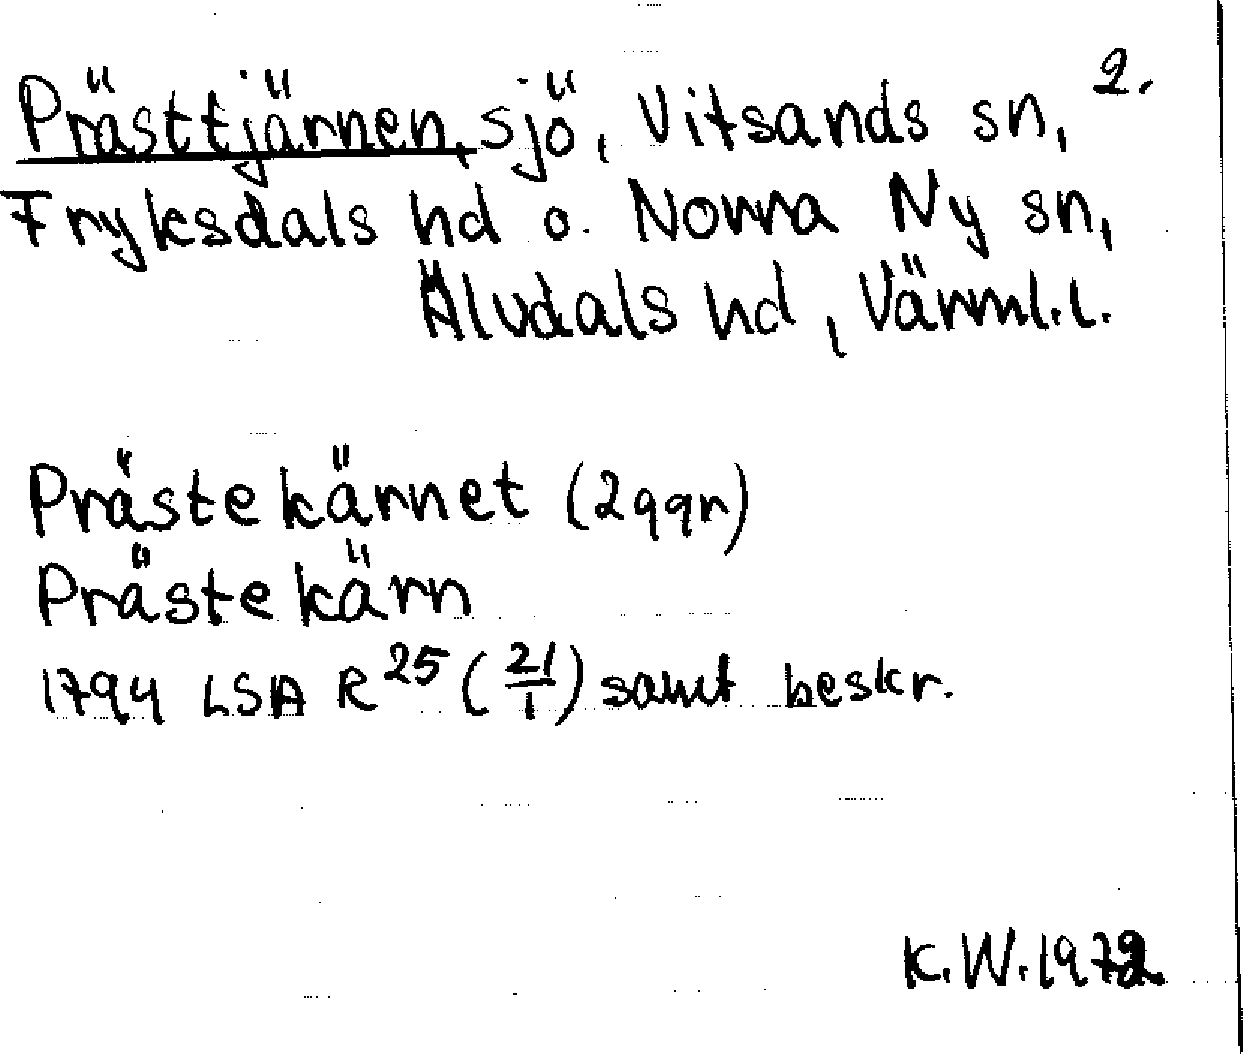 Prästtjärnen, sjö, Vitsands sn, 2.
Fryksdals hd o. Norra Ny sn,
Älvdals hd, Värml.l.
Prästekärnet (2ggr)
Prästekärn
1794 LSA R25 (21/1) samt beskr.
K.W. 1972